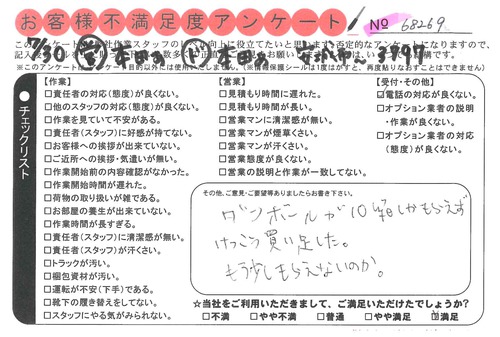 お客様不満足度アンケート
No 68269
7/30
チェックリスト
【作業】
□責任者の対応(態度)が良くない。
□他のスタッフの対応(態度)が良くない。
□作業を見ていて不安がある。
□責任者(スタッフ)に好感が持てない。
□お客様への挨拶が出来ていない。
□ご近所への挨拶・気遣いが無い。
□作業開始前の内容確認がなかった。
□作業開始時間が遅れた。
□荷物の取り扱いが雑である。
□お部屋の養生が出来ていない。
□作業時間が長すぎる。
□責任者(スタッフ)に清潔感が無い。
□責任者(スタッフ)が汗くさい。
□トラックが汚い。
□梱包資材が汚い。
□運転が不安(下手)である。
□靴下の履き替えをしてない。
□スタッフにやる気がみられない。
【営業】
□見積もり時間に遅れた。
□見積もり時間が長い。
□営業マンに清潔感が無い。
□営業マンが煙草くさい。
□営業マンが汗くさい。
□営業態度が良くない。
□営業の説明と作業が一致してない。
【受付・その他】
□電話の対応が良くない。
□オプション業者の説明
・作業が良くない。
□オプション業者の対応
(態度)が良くない。
その他、ご意見・ご要望等ありましたらお書き下さい。
ダンボールが10箱しかもらえず
けっこう買い足した。
もう少しもらえないのか。
☆当社をご利用いただきまして、ご満足いただけたでしょうか?
□不満 □やや不満 □普通 □やや満足 ☑満足